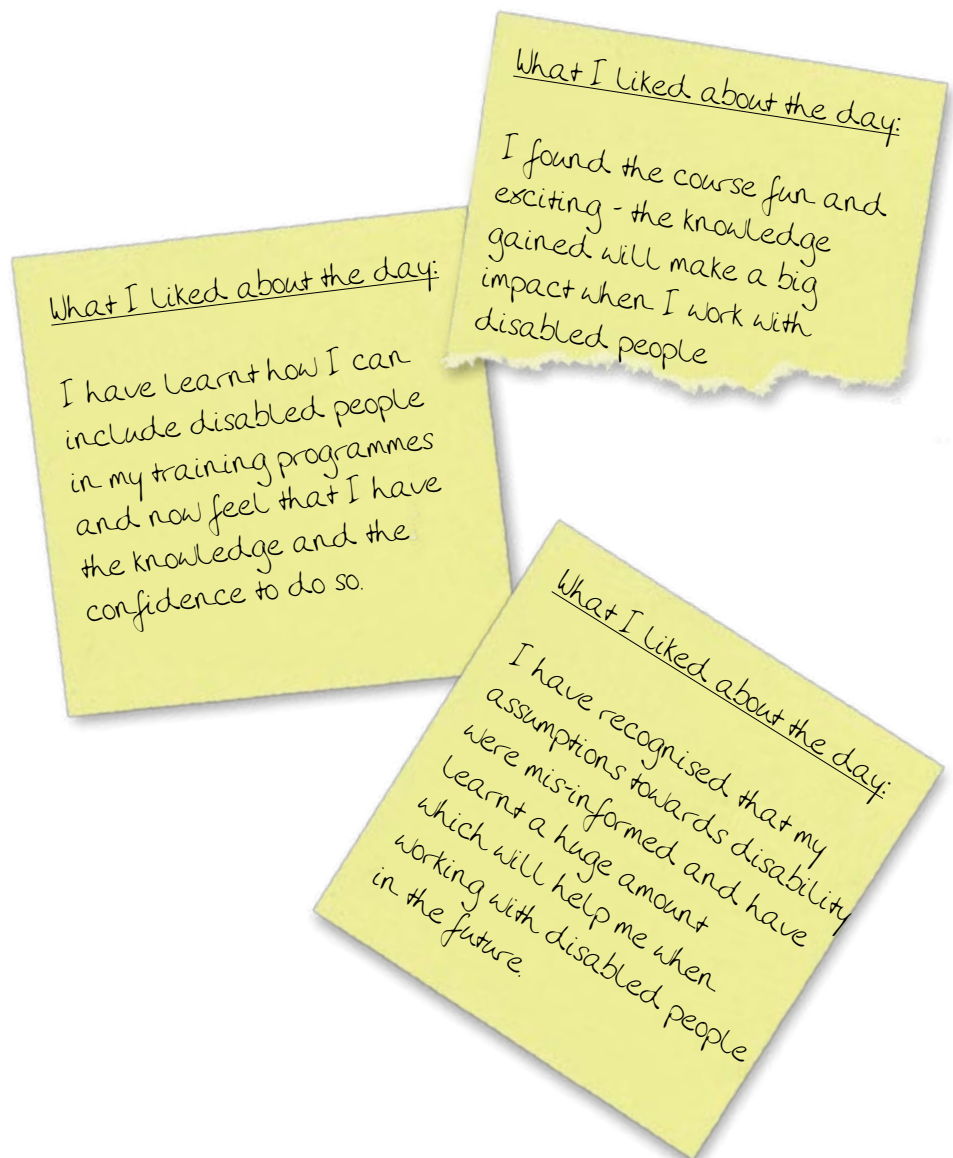 What I liked about the day:
I found the course fun and
exciting - the knowledge
gained will make a big
impact when I work with
disabled people
What I liked about the day:
I have learnt how I can
include disabled people
in my training programmes
and now feel that I have
the knowledge and the
confidence to do so.
What I liked about the day:
I have recognised that my
assumptions towards disability
were mis-informed and have
learnt a huge amount
which will help me when
working with disabled people
in the future.